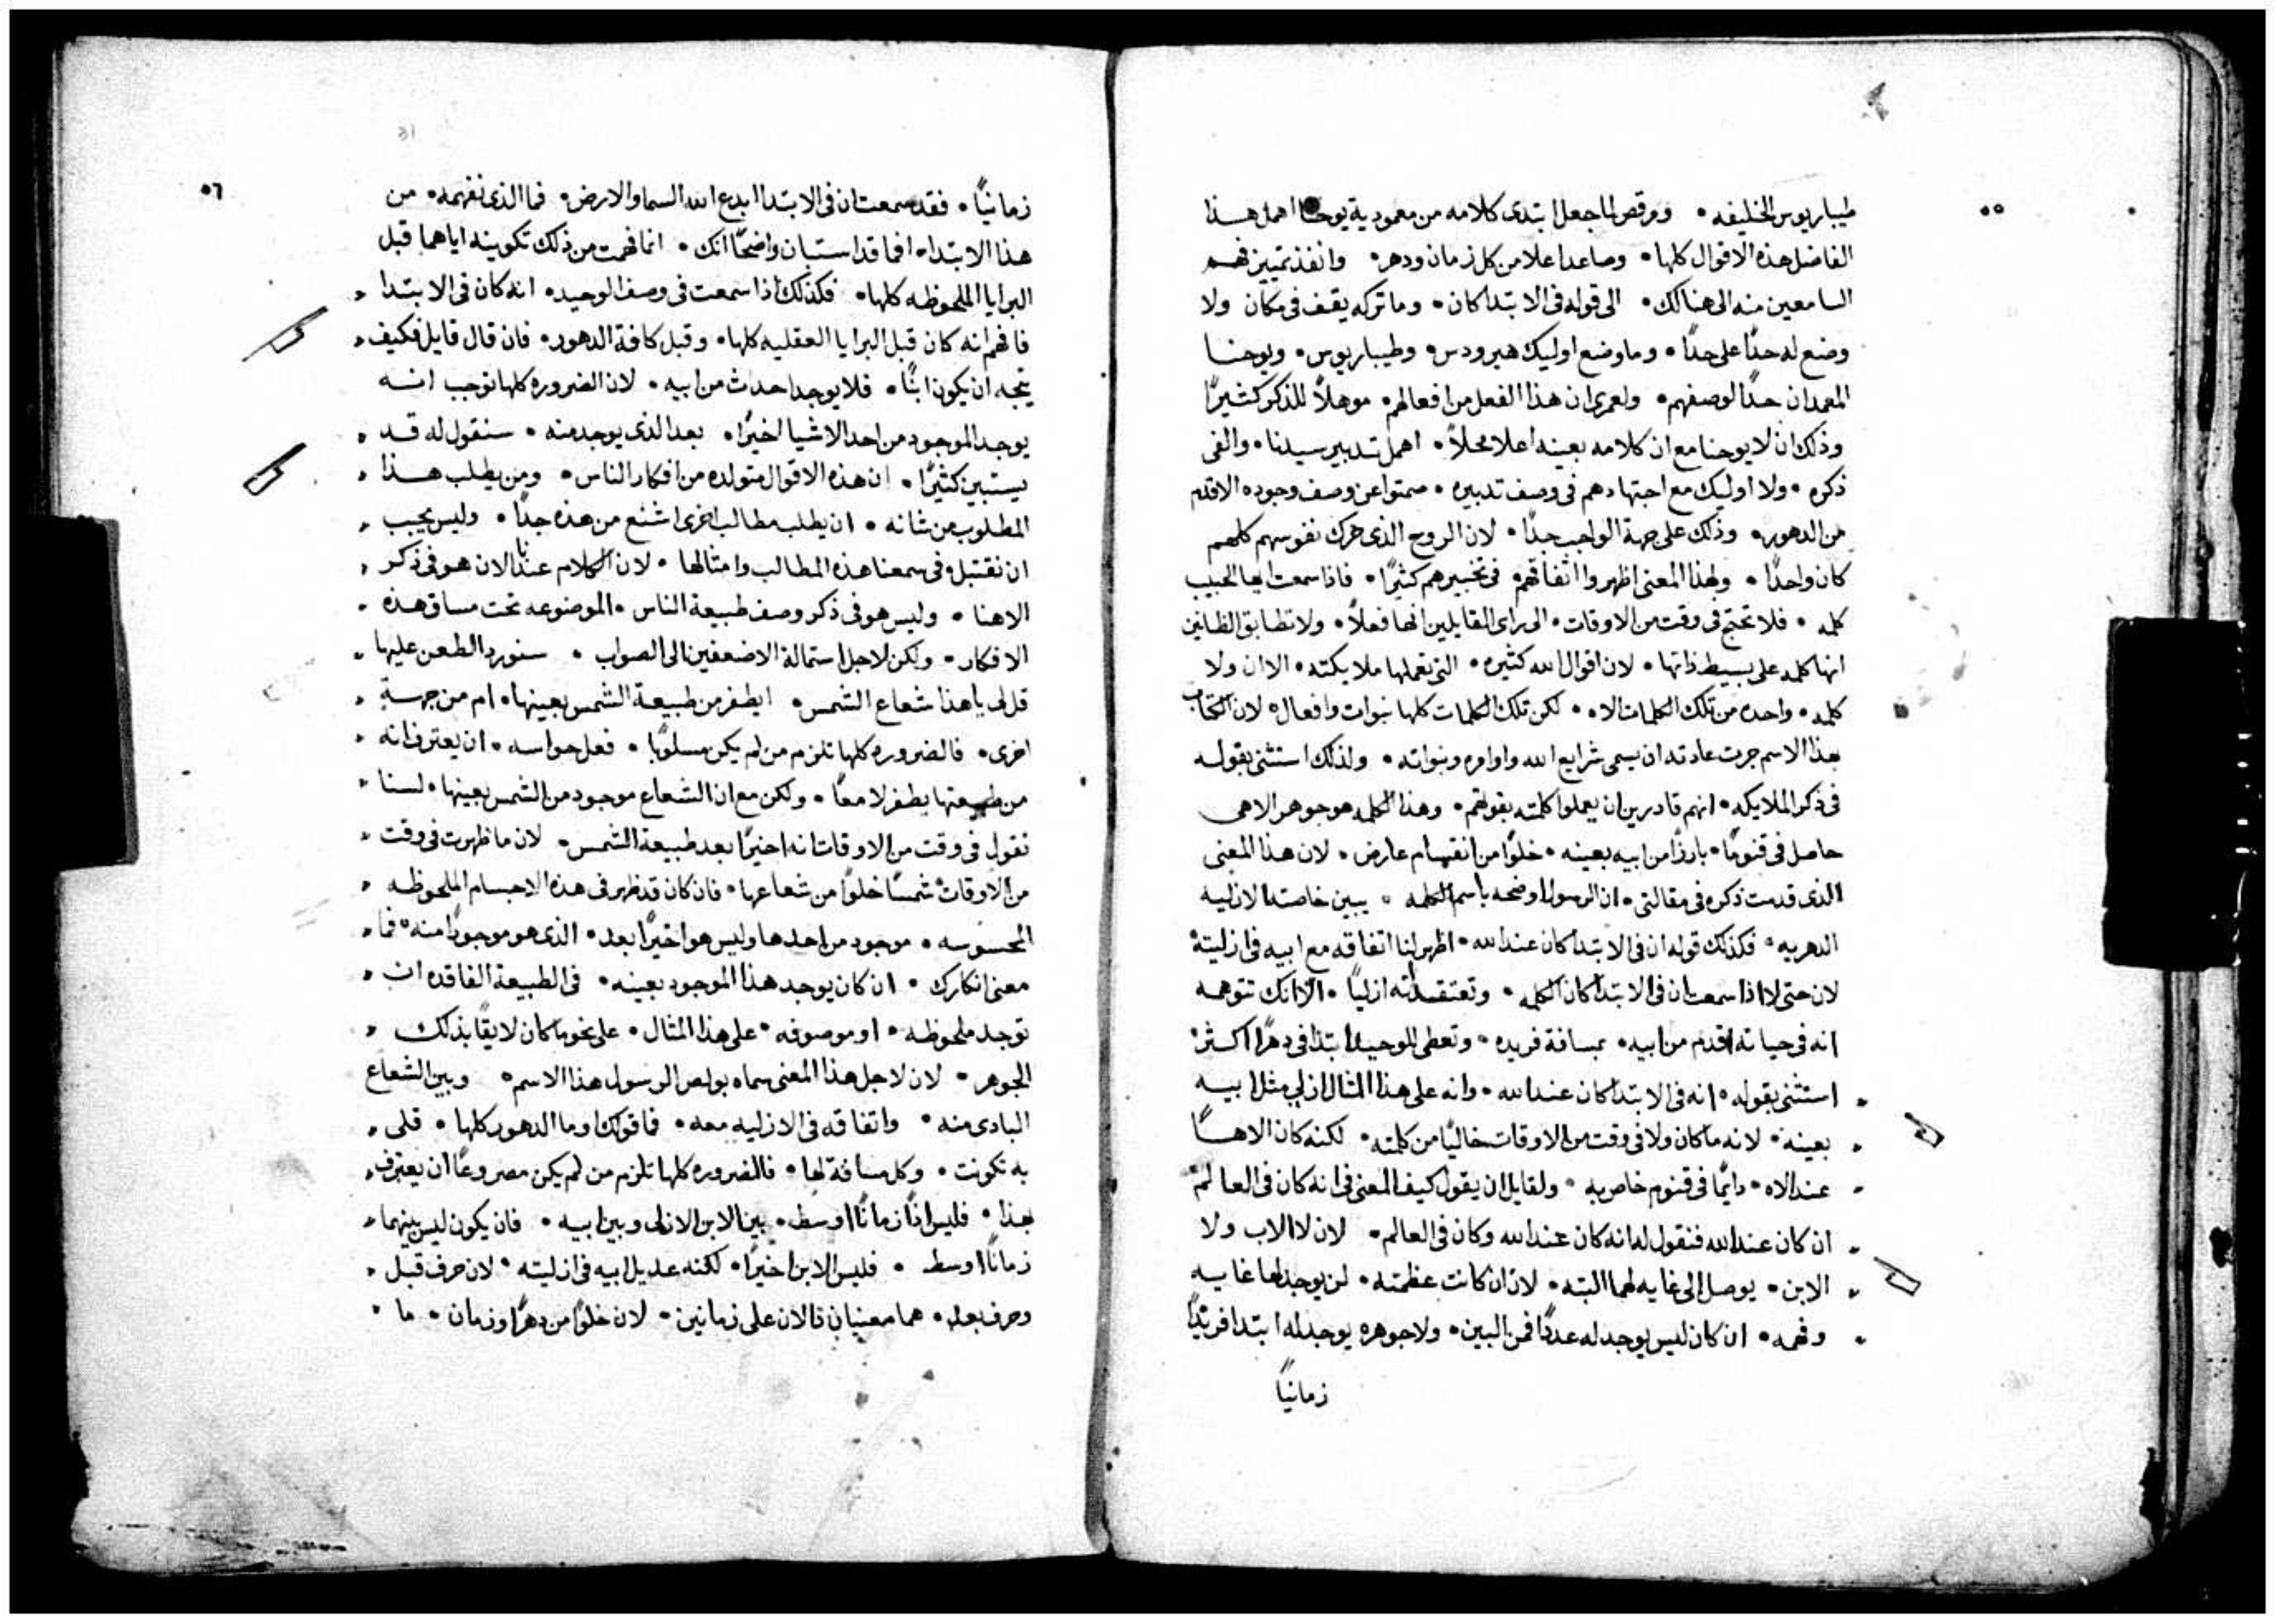 ٥٥
طيباريوس الخليفه • ومرقص لما جعل ابتدى كلامه من معمودية يوحنا اهمل هذا
الفاضل هذه الاقوال كلها • وصاعدا اعلا من كل زمان ودهر • وانفذ تمييز فهم
السامعين منه الى هنالك • الى قوله فى الابتدا كان • وما تركه يقف فى مكان ولا
وضع له حدًا على حدًا • وما وضع اوليك هيرودس • وطيباريوس • ويوحنا
المعمدان حدًا لوصفهم • ولعمرى ان هذا الفعل من افعالهم • موهلاً للذكر كثيرًا
وذلك ان لا يوحنا مع ان كلامه بعينه اعلا محلاً • اهمل تدبير سيدنا • والغى
ذكره • ولا اوليك مع اجتهادهم فى وصف تدبيره • صمتوا عن وصف وجوده الاقدم
من الدهور • وذلك على جهة الواجب جدًا • لان الروح الذى حرك نفوسهم كلهم
كان واحدًا • ولهذا المعنى اظهروا اتفاقهم فى تخبيرهم كثيرًا • فاذا سمعت ايها الحبيب
كلمه • فلا تحتج فى وقت من الاوقات • الى راى القايلين انها فعلاً • ولا تطابق الظانين
انها كلمه على بسيط ذاتها • لان اقوال الله كثيره • التى تعملها ملايكته • الا ان ولا
كلمه • واحده من تلك الكلمات الاه • لكن تلك الكلمات كلها نبوات وافعال • لان الكتاب
بهذا الاسم جرت عادته ان يسمى شرايع الله واوامره ونبواته • ولذلك استثنى بقوله
فى ذكر الملايكه • انهم قادرين ان يعملوا كلمته بقوتهم • وهذا الكلمه هو جوهر الاهى
حاصل فى قنومًا • بارزًا من ابيه بعينه • خلوًا من انقسام عارض • لان هذا المعنى
الذى قدمت ذكره فى مقالتى • ان الرسول اوضحه باسم الكلمه • يبين خاصته الازليه
الدهريه • فكذلك قوله ان فى الابتدا كان عند الله • اظهر لنا اتفاقه مع ابيه فى ازليته
لان حتى لا اذا سمعت ان فى الابتدا كان الكلمه • وتعتقد انه ازليًا • الا انك تتوهم
انه فى حياته اقدم من ابيه • بمسافة فريده • وتعطى للوحيد ابتدا فى دهرًا اكثر
استثنى بقوله • انه فى الابتدا كان عند الله • وانه على هذا المثال ازلى مثل ابيه
بعينه • لانه ما كان ولا فى وقت من الاوقات خاليًا من كلمته • لكنه كان الاهًا
عند الاه • دايمًا فى قنوم خاص به • ولقايل ان يقول كيف المعنى فى انه كان فى العالم
ان كان عند الله فنقول له انه كان عند الله وكان فى العالم • لان لا الاب ولا
الابن • يوصل الى غايه لهما البته • لان ان كانت عظمته • لن يوجد لها غايه
وفهمه • ان كان ليس يوجد له عددًا فمن البين • ولا جوهره يوجد له ابتدا فريدًا
زمانيًا
٥٦
زمانيًا • فقد سمعت ان فى الابتدا ابدع الله السما والارض • فما الذى نفهمه • من
هذا الابتدا • افما قد استبان واضحًا انك • انما فهمت من ذلك تكوينه اياهما قبل
البرايا الملحوظه كلها • فكذلك اذا سمعت فى وصف الوحيد • انه كان فى الابتدا
فافهم انه كان قبل البرايا العقليه كلها • وقبل كافة الدهور • فان قال قايل فكيف
يتجه ان يكون ابنًا • فلا يوجد احدث من ابيه • لان الضروره كلها توجب انه
يوجد الموجود من احد الاشيا اخيرًا • بعد الذى يوجد منه • سنقول له قد
يستبين كثيرًا • ان هذه الاقوال متولده من افكار الناس • ومن يطلب هذا
المطلوب من شانه • ان يطلب مطالب اخرى اشنع من هذه جدًا • وليس يجب
ان نقتبل فى سمعنا هذه المطالب وامثالها • لان الكلام عندنا الان هو فى ذكر
الاهنا • وليس هو فى ذكر وصف طبيعة الناس • الموضوعه تحت مساق هذه
الافكار • ولكن لاجل استمالة الاضعفين الى الصواب • سنورد الطعن عليها
قل لى يا هذا شعاع الشمس • ايطفر من طبيعة الشمس بعينها • ام من جهة
اخرى • فالضروره كلها تلزم من لم يكن مسلوبًا • فعل حواسه • ان يعترف انه
من طبيعتها يطفر لامعًا • ولكن مع ان الشعاع موجود من الشمس بعينها • لسنا
نقول فى وقت من الاوقات انه اخيرًا بعد طبيعة الشمس • لان ما ظهرت فى وقت
من الاوقات شمسًا خلوًا من شعاعها • فان كان قد ظهر فى هذه الاجسام الملحوظه
المحسوسه • موجود من احدها وليس هو اخيرًا بعد • الذى هو موجودًا منه • فما
معنى انكارك • ان كان يوجد هذا الموجود بعينه • فى الطبيعة الفاقده ان
توجد ملحوظه • او موصوفه • على هذا المثال • على نحو ما كان لايقًا بذلك
الجوهر • لان لاجل هذا المعنى سماه بولص الرسول هذا الاسم • وبين الشعاع
البادى منه • واتفاقه فى الازليه معه • فما قولك اوما الدهور كلها • قل لى
به تكونت • وكل مسافة لها • فالضروره كلها تلزم من لم يكن مصروعًا ان يعترف
بهذا • فليس اذًا زمانًا اوسط • بين الابن الازلى وبين ابيه • فان يكون ليس بينهما
زمانًا اوسط • فليس الابن اخيرًا • لكنه عديل ابيه فى ازليته • لان حرف قبل
وحرف بعد • هما معنيان دالان على زمانين • لان خلوًا من دهرًا وزمان • ما